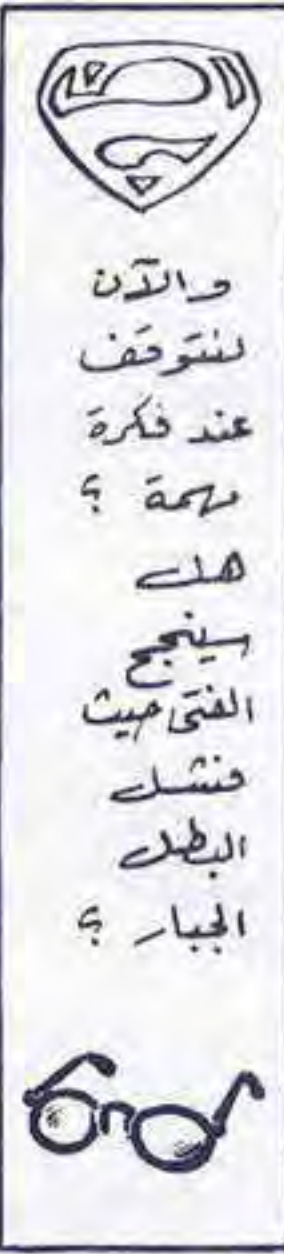 والآن
لنتوقف
عند فكرة
مهمة ؟
هل
سينجح
الفتى حيث
فشل
البطل
الجبار ؟